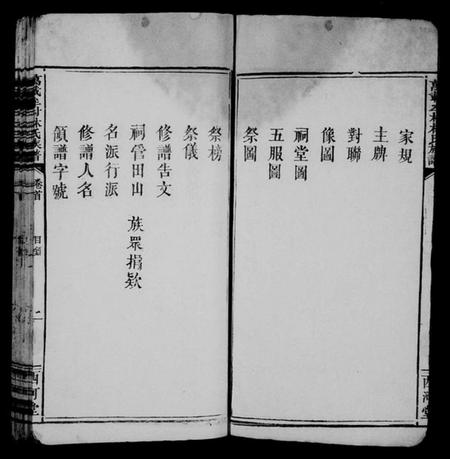 家規
主牌
對聯
像圖
祠堂圖
五服圖
祭圖
西河堂
祭榜
祭儀
修譜告文
祠管田山 族眾捐欵
名派行派
修譜人名
領譜字號
卷首
目錄
二
西河堂